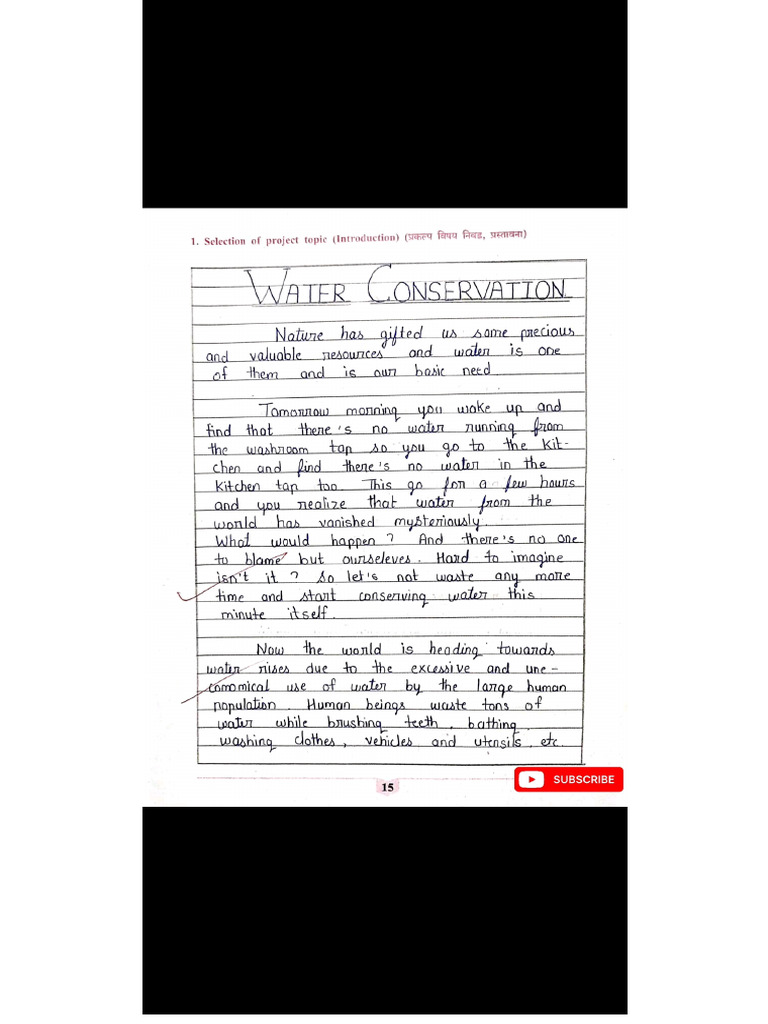 1. Selection of project topic (Introduction) (प्रकल्प विषय निवड, प्रस्तावना)
WATER CONSERVATION
Nature has gifted us some precious
and valuable resources and water is one
of them and is our basic need
Tomorrow morning you wake up and
find that there's no water running from
the washroom tap so you go to the Kit-
chen and find there's no water in the
kitchen tap too. This go for a few hours
and you realize that water from the
world has vanished mysteriously.
What would happen? And there's no one
to blame but ourseleves. Hard to imagine
isn't it? So let's not waste any more
time and start conserving water this
minute itself.
Now the world is heading towards
water rises due to the excessive and une-
conomical use of water by the large human
population. Human beings waste tons of
water while brushing teeth, bathing,
washing clothes, vehicles and utensils, etc.
15
SUBSCRIBE